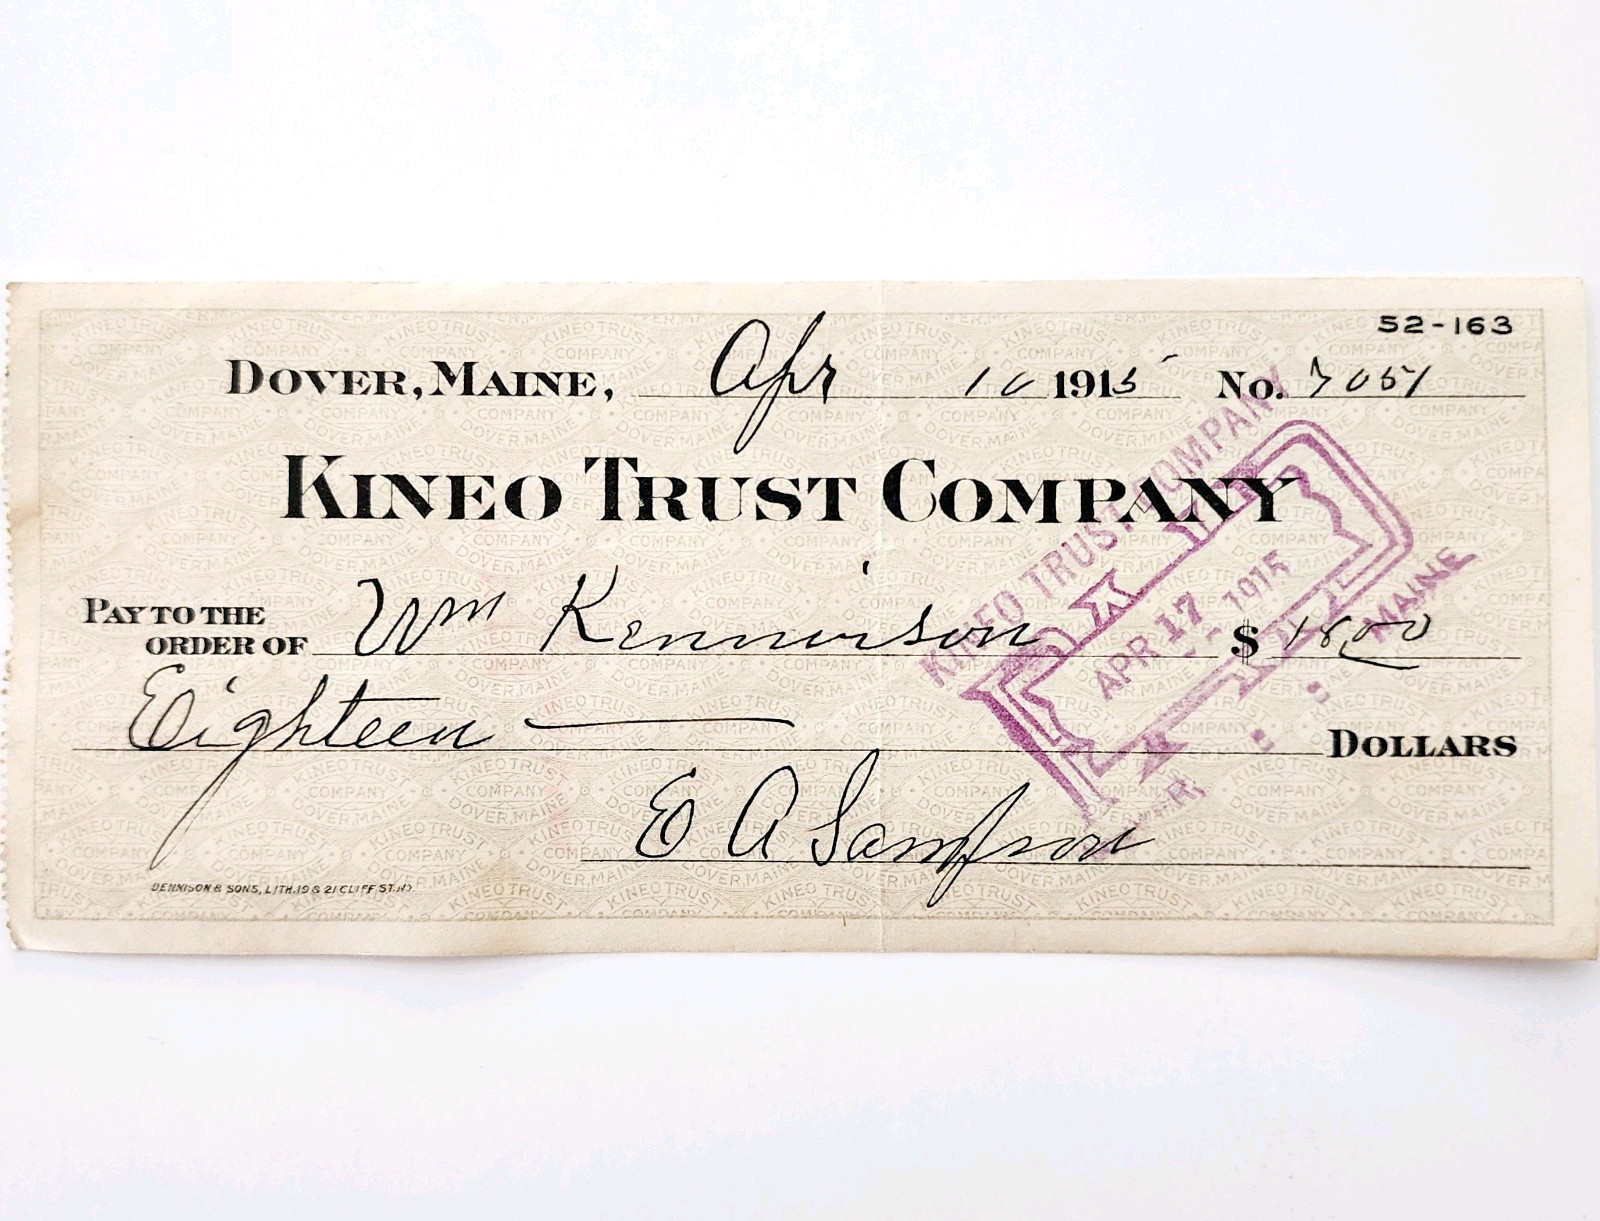 52-163
DOVER, MAINE, Apr 10 1915 No. 7051
KINEO TRUST COMPANY
PAY TO THE
ORDER OF Wm Kennison $ 18 00
Eighteen DOLLARS
E A Sampson
DENNISON & SONS, LITH. 19 & 21 CLIFF ST. N.Y.
KINEO TRUST COMPANY
PAID
APR 17 1915
MAINE